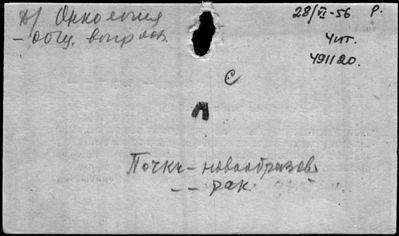 А/ Онкология
28/VI-56 Р.
- общ. вопросы.
Чит.
491120.
С
П
Почки - новообразов
- - рак